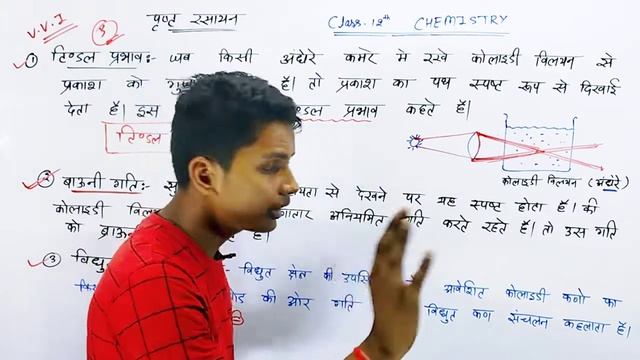 V.V.I 3 पृष्ठ रसायन Class. 12th CHEMISTRY
① टिण्डल प्रभाव:- जब किसी अंधेरे कमरे मे रखे कोलाइडी विलयन से
प्रकाश को हैं। तो प्रकाश का पथ स्पष्ट रूप से दिखाई
देता है। इस प्रभाव कहते हैं।
टिण्डल
कोलाइडी विलयन (अंधेरे)
② ब्राउनी गति:- से देखने पर यह स्पष्ट होता हैं। की
कोलाइडी अनियमित गति करते रहते हैं। तो उस गति
को है।
③ विद्युत - विद्युत क्षेत्र की आवेशित कोलाइडी कणो का
की ओर गति विद्युत कण संचलन कहलाता हैं।